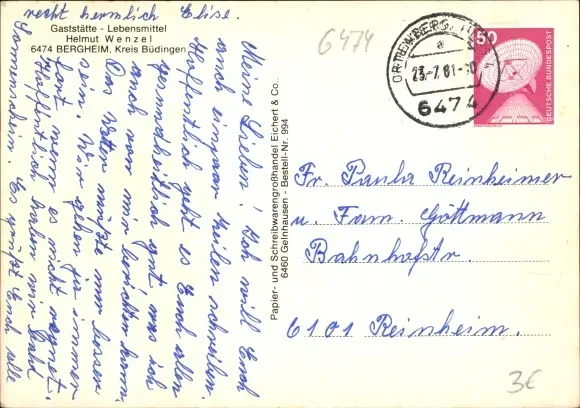 Gaststätte - Lebensmittel
Helmut Wenzel
6474 BERGHEIM, Kreis Büdingen
Meine Lieben! Ich will Euch
auch einpaar Zeilen schreiben.
Hoffentlich geht es Euch allen
gesundheitlich gut, was ich
auch von mir berichten kann.
Das Wetter müßte nur besser
sein. Wir gehen ja immer
fort wenn es nicht regnet.
Hoffentlich haben wir bald
Sonnenschein. Es grüßt Euch alle
recht herzlich Elise.
Papier- und Schreibwarengroßhandel Eichert & Co.
6460 Gelnhausen - Bestell-Nr. 994
6474
ORTENBERG, HESS
a
23.-7.81-10
6474
50
DEUTSCHE BUNDESPOST
Fr. Paula Reinheimer
u. Fam. Göttmann
Bahnhofstr.
6101 Reinheim.
3€